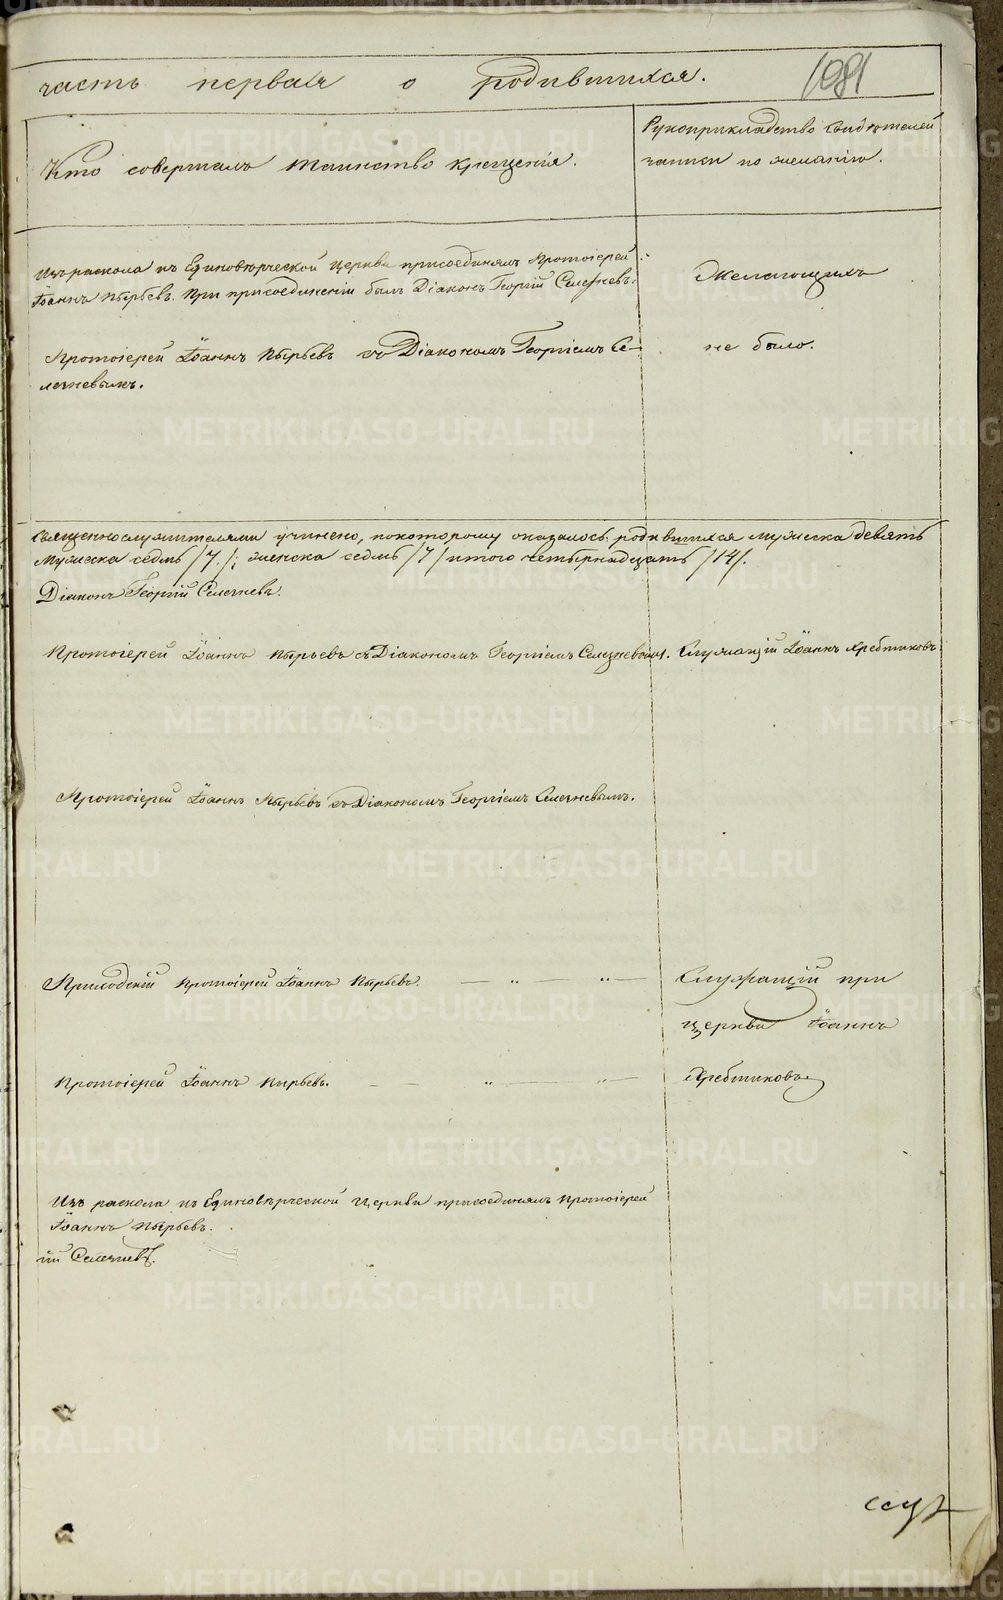 часть первая о родившихся.
1081
Кто совершалъ таинство крещенія.
Рукоприкладство свидѣтелей
записи по желанію.
Изъ раскола къ Единовѣрческой Церкви присоединялъ Протоіерей
Іоаннъ Пырьевъ. При присоединеніи былъ Діаконъ Георгій Селезневъ.
Желающихъ
Протоіерей Іоаннъ Пырьевъ съ Діакономъ Георгіемъ Се-
лезневымъ.
не было.
священнослужителями учинено, покоторому оказалось родившихся мужеска девять
мужеска седмь /7/; женска седмь /7/ итого четырнадцать /14/.
Діаконъ Георгій Селезневъ.
Протоіерей Іоаннъ Пырьевъ съ Діакономъ Георгіемъ Селезневымъ. Служащій Іоаннъ Хребтиковъ
Протоіерей Іоаннъ Пырьевъ съ Діакономъ Георгіемъ Селезневымъ.
Приходскій Протоіерей Іоаннъ Пырьевъ.
Служащій при
Церкви Іоаннъ
Протоіерей Іоаннъ Пырьевъ.
Хребтиковъ
Изъ раскола къ Единовѣрческой Церкви присоединялъ Протоіерей
Іоаннъ Пырьевъ.
ій Селезневъ.
METRIKI.GASO-URAL.RU